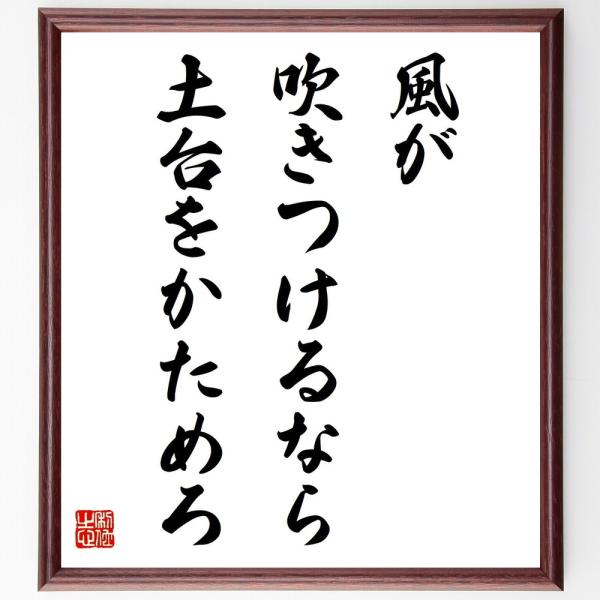 風が
吹きつけるなら
土台をかためろ